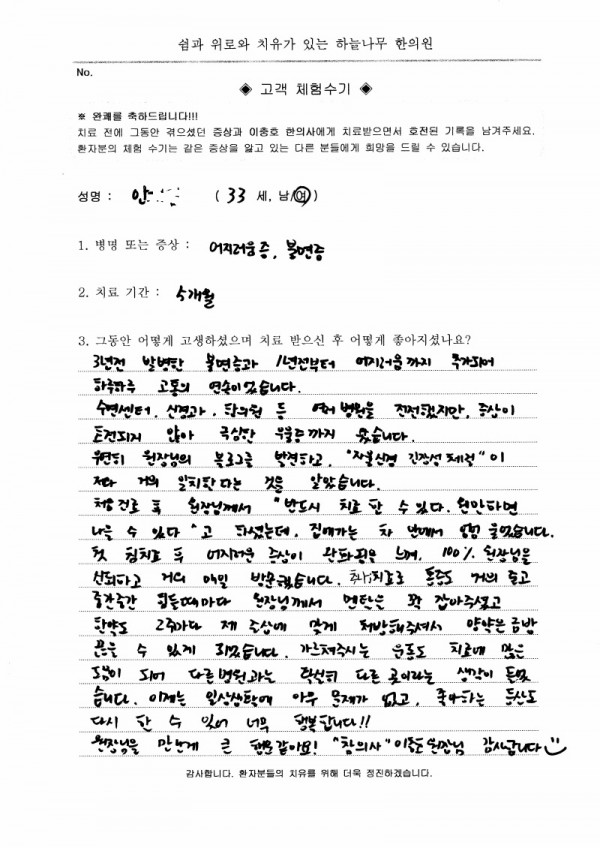 쉼과 위로와 치유가 있는 하늘나무 한의원
No.
◈ 고객 체험수기 ◈
※ 완쾌를 축하드립니다!!!
치료 전에 그동안 겪으셨던 증상과 이종호 한의사에게 치료받으면서 호전된 기록을 남겨주세요.
환자분의 체험 수기는 같은 증상을 앓고 있는 다른 분들에게 희망을 드릴 수 있습니다.
성명 : 안 ( 33 세, 남/여 )
1. 병명 또는 증상 : 어지러움증, 불면증
2. 치료 기간 : 5개월
3. 그동안 어떻게 고생하셨으며 치료 받으신 후 어떻게 좋아지셨나요?
3년전 발병한 불면증과 1년전부터 어지러움까지 추가되어
하루하루 고통의 연속이었습니다.
수면센터, 신경과, 한의원 등 여러 병원을 전전했지만, 증상이
호전되지 않아 극심한 우울증까지 왔습니다.
우연히 원장님의 블로그를 발견하고, "자율신경 긴장성 체질"이
저와 거의 일치한다는 것을 알았습니다.
처음 진료 후 원장님께서 "반드시 치료 할 수 있다. 원만하면
나을 수 있다" 고 하셨는데, 집에가는 차 안에서 엉엉 울었습니다.
첫 침치료 후 어지러운 증상이 완화됨을 느껴, 100% 원장님을
신뢰하고 거의 매일 방문했습니다. 치료로 통증도 거의 줄고
중간중간 힘든때마다 원장님께서 멘탄을 꽉 잡아주셨고
한약도 2주마다 제 증상에 맞게 처방해주셔서 양약은 금방
끊을 수 있게 되었습니다. 가르쳐주시는 운동도 치료에 많은
도움이 되어 다른병원과는 확실히 다른 곳이라는 생각이 들었
습니다. 이제는 일상생활에 아무 문제가 없고, 좋아하는 등산도
다시 할 수 있어 너무 행복합니다!!
원장님을 만난게 큰 행운같아요! "참의사" 이종호 원장님 감사합니다
감사합니다. 환자분들의 치유를 위해 더욱 정진하겠습니다.